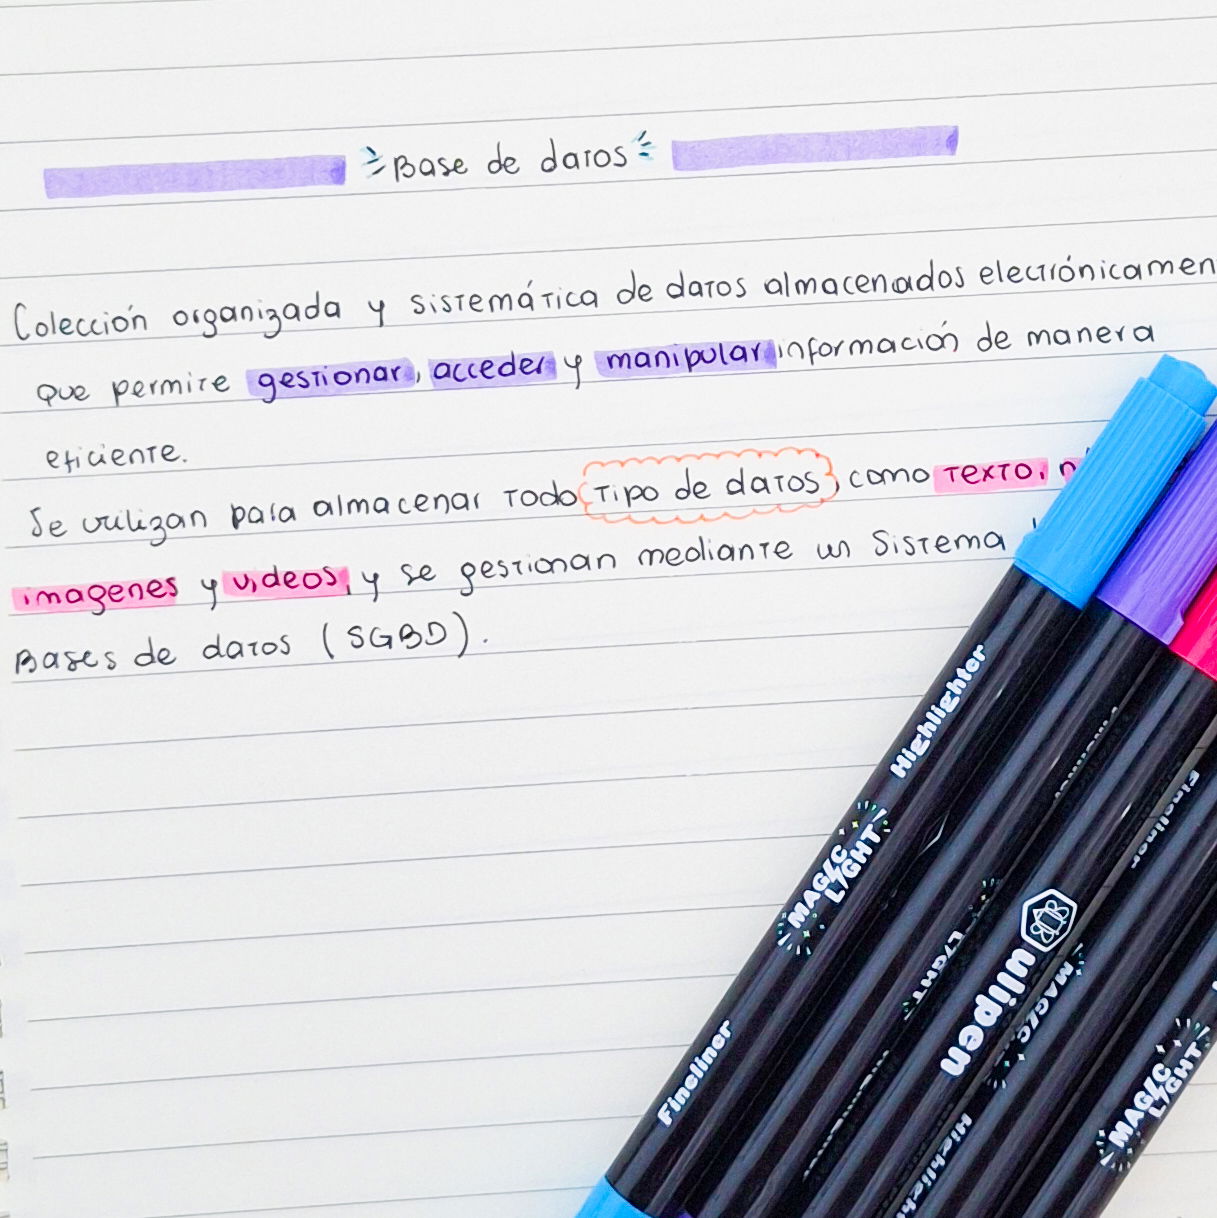 Base de datos
Colección organizada y sistemática de datos almacenados electrónicamen
que permite gestionar, acceder y manipular información de manera
eficiente.
Se utilizan para almacenar todo tipo de datos, como texto,
imagenes y videos, y se gestionan mediante un Sistema
Bases de datos (SGBD).
Highlighter
MAGIC
LIGHT
Fineliner
ulipen
MAGIC
LIGHT
Fineliner
Highligh
MAGIC
LIGHT